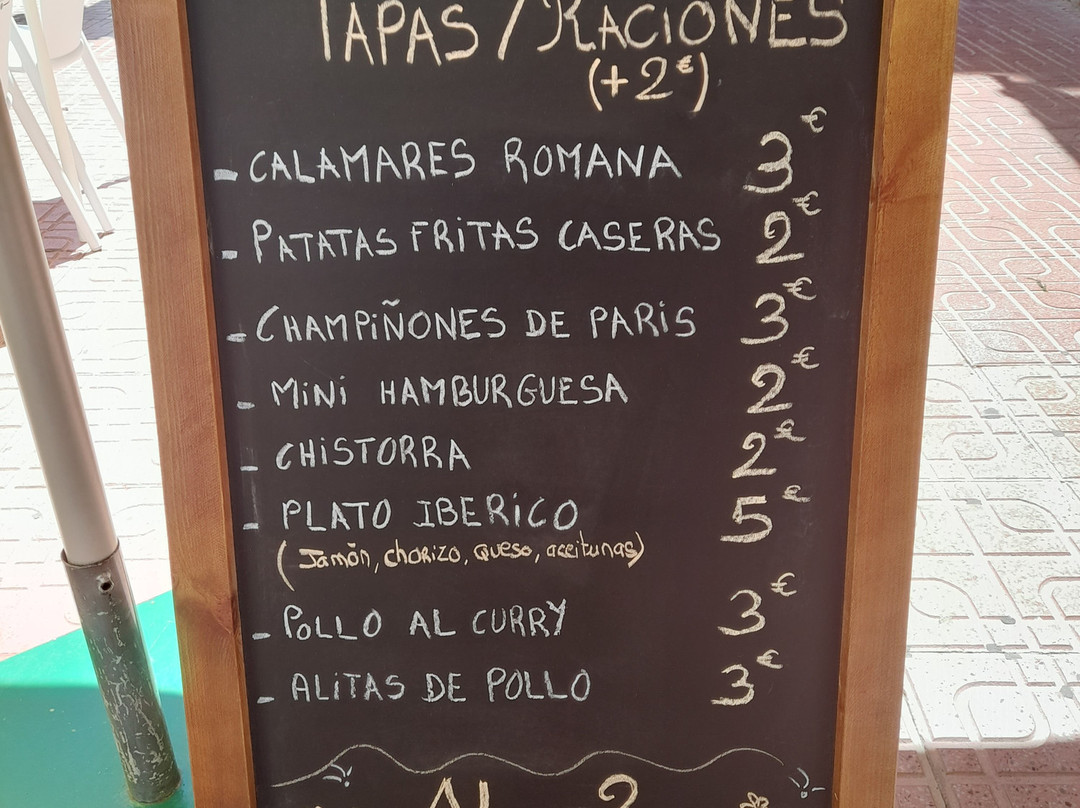 TAPAS / RACIONES
(+2€)
- CALAMARES ROMANA 3€
- PATATAS FRITAS CASERAS 2€
- CHAMPIÑONES DE PARIS 3€
- MINI HAMBURGUESA 2€
- CHISTORRA 2€
- PLATO IBERICO 5€
(Jamón, chorizo, queso, aceitunas)
- POLLO AL CURRY 3€
- ALITAS DE POLLO 3€